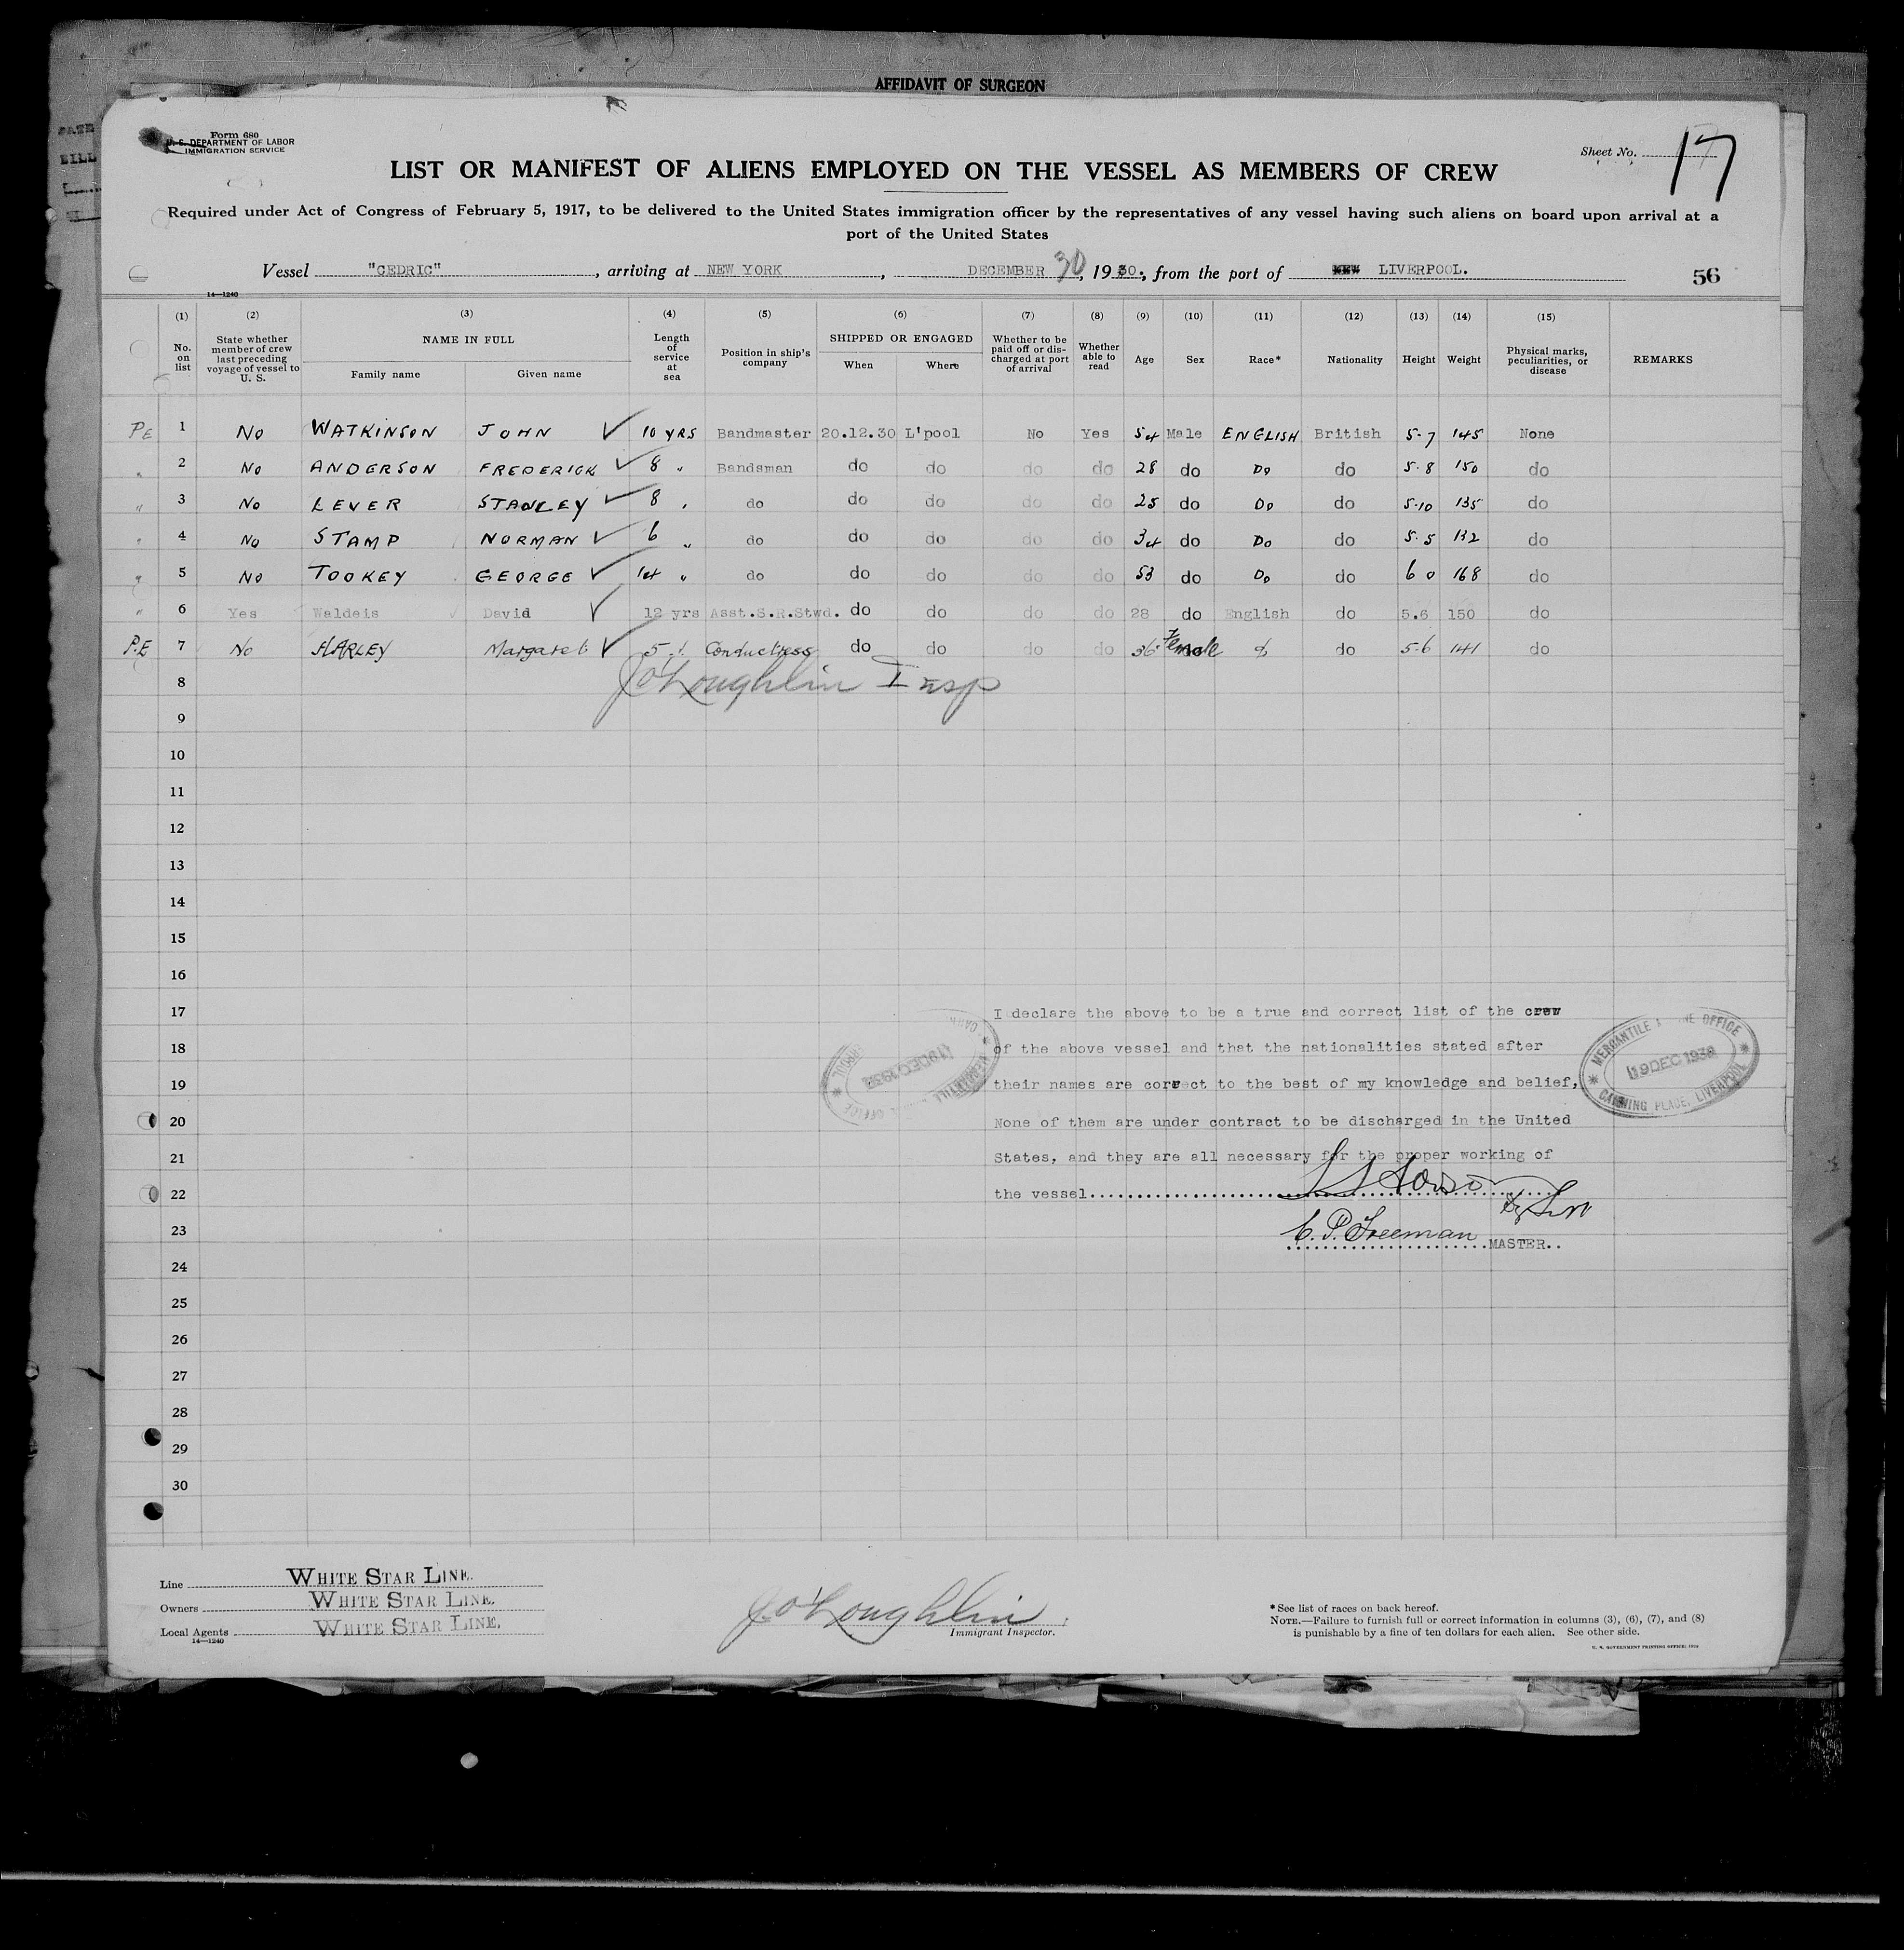 AFFIDAVIT OF SURGEON
Form 680
U. S. DEPARTMENT OF LABOR
IMMIGRATION SERVICE
Sheet No. 17
LIST OR MANIFEST OF ALIENS EMPLOYED ON THE VESSEL AS MEMBERS OF CREW
Required under Act of Congress of February 5, 1917, to be delivered to the United States immigration officer by the representatives of any vessel having such aliens on board upon arrival at a
port of the United States
Vessel "CEDRIC", arriving at NEW YORK, DECEMBER 30, 1930, from the port of LIVERPOOL.
56
14—1240
(1) (2) (3) (4) (5) (6) (7) (8) (9) (10) (11) (12) (13) (14) (15)
No. on list
State whether member of crew last preceding voyage of vessel to U. S.
NAME IN FULL
Family name
Given name
Length of service at sea
Position in ship's company
SHIPPED OR ENGAGED
When
Where
Whether to be paid off or discharged at port of arrival
Whether able to read
Age
Sex
Race*
Nationality
Height
Weight
Physical marks, peculiarities, or disease
REMARKS
PE 1 No WATKINSON JOHN ✓ 10 YRS Bandmaster 20.12.30 L'pool No Yes 54 Male ENGLISH British 5-7 145 None
" 2 No ANDERSON FREDERICK ✓ 8 " Bandsman do do do do 28 do Do do 5.8 150 do
" 3 No LEVER STANLEY ✓ 8 " do do do do do 25 do Do do 5-10 135 do
" 4 No STAMP NORMAN ✓ 6 " do do do do do 34 do Do do 5.5 132 do
" 5 No TOOKEY GEORGE ✓ 14 " do do do do do 53 do Do do 6 0 168 do
" 6 Yes Waldeis David ✓ 12 yrs Asst.S.R.Stwd. do do do do 28 do English do 5.6 150 do
P.E 7 No HARLEY Margaret ✓ 5 Conductress do do do do 36 Female do do 5-6 141 do
8 J O'Loughlin Insp
9
10
11
12
13
14
15
16
17 I declare the above to be a true and correct list of the crew
18 of the above vessel and that the nationalities stated after
19 their names are correct to the best of my knowledge and belief,
20 None of them are under contract to be discharged in the United
21 States, and they are all necessary for the proper working of
22 the vessel
23 C. P. Freeman MASTER..
24
25
26
27
28
29
30
MERCANTILE OFFICE
19 DEC 1930
CANNING PLACE, LIVERPOOL
19 DEC 1930
Line WHITE STAR LINE.
Owners WHITE STAR LINE.
Local Agents WHITE STAR LINE.
14—1240
J. O'Loughlin
Immigrant Inspector.
* See list of races on back hereof.
NOTE.—Failure to furnish full or correct information in columns (3), (6), (7), and (8)
is punishable by a fine of ten dollars for each alien. See other side.